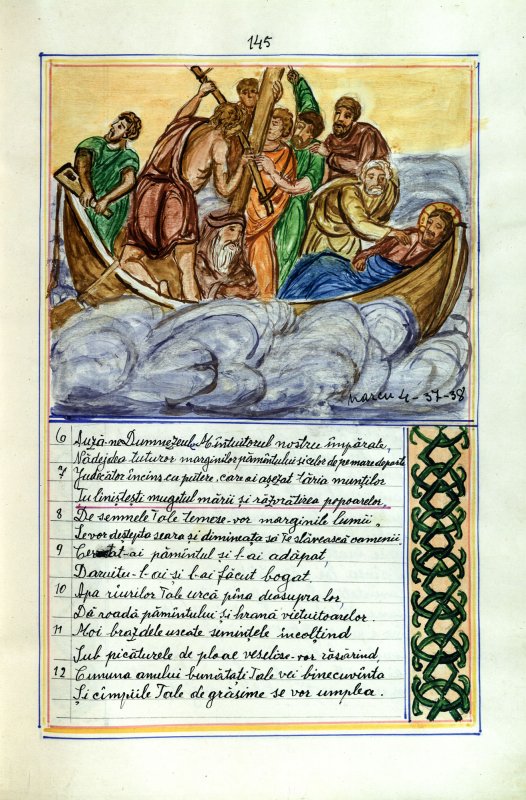 145
Marcu 4-37-38
6 Auză-ne Dumnezeul Mîntuitorul nostru împărate,
Nădejdea tuturor marginilor pământului și celor de pe mare departe
7 Judicător încins cu putere, care ai așezat tăria munților
Tu liniștești mugetul mării și răzvrătirea popoarelor
8 De semnele Tale temese-vor marginile lumii,
Se vor deștepta seara și dimineața să Te slăvească oamenii.
9 Cercetat-ai pămîntul și l-ai adăpat,
Daruitu-l-ai și l-ai făcut bogat.
10 Apa riurilor Tale urcă pina deasupra lor,
Dă roadă pămîntului și hrană vietuitoarelor.
11 Moi brazdele uscate semințele incoltind
Sub picăturele de ploae veselise-vor răsărind
12 Cununa anului bunătăți Tale vei binecuvînta
Și cîmpiile Tale de grăsime se vor umplea.